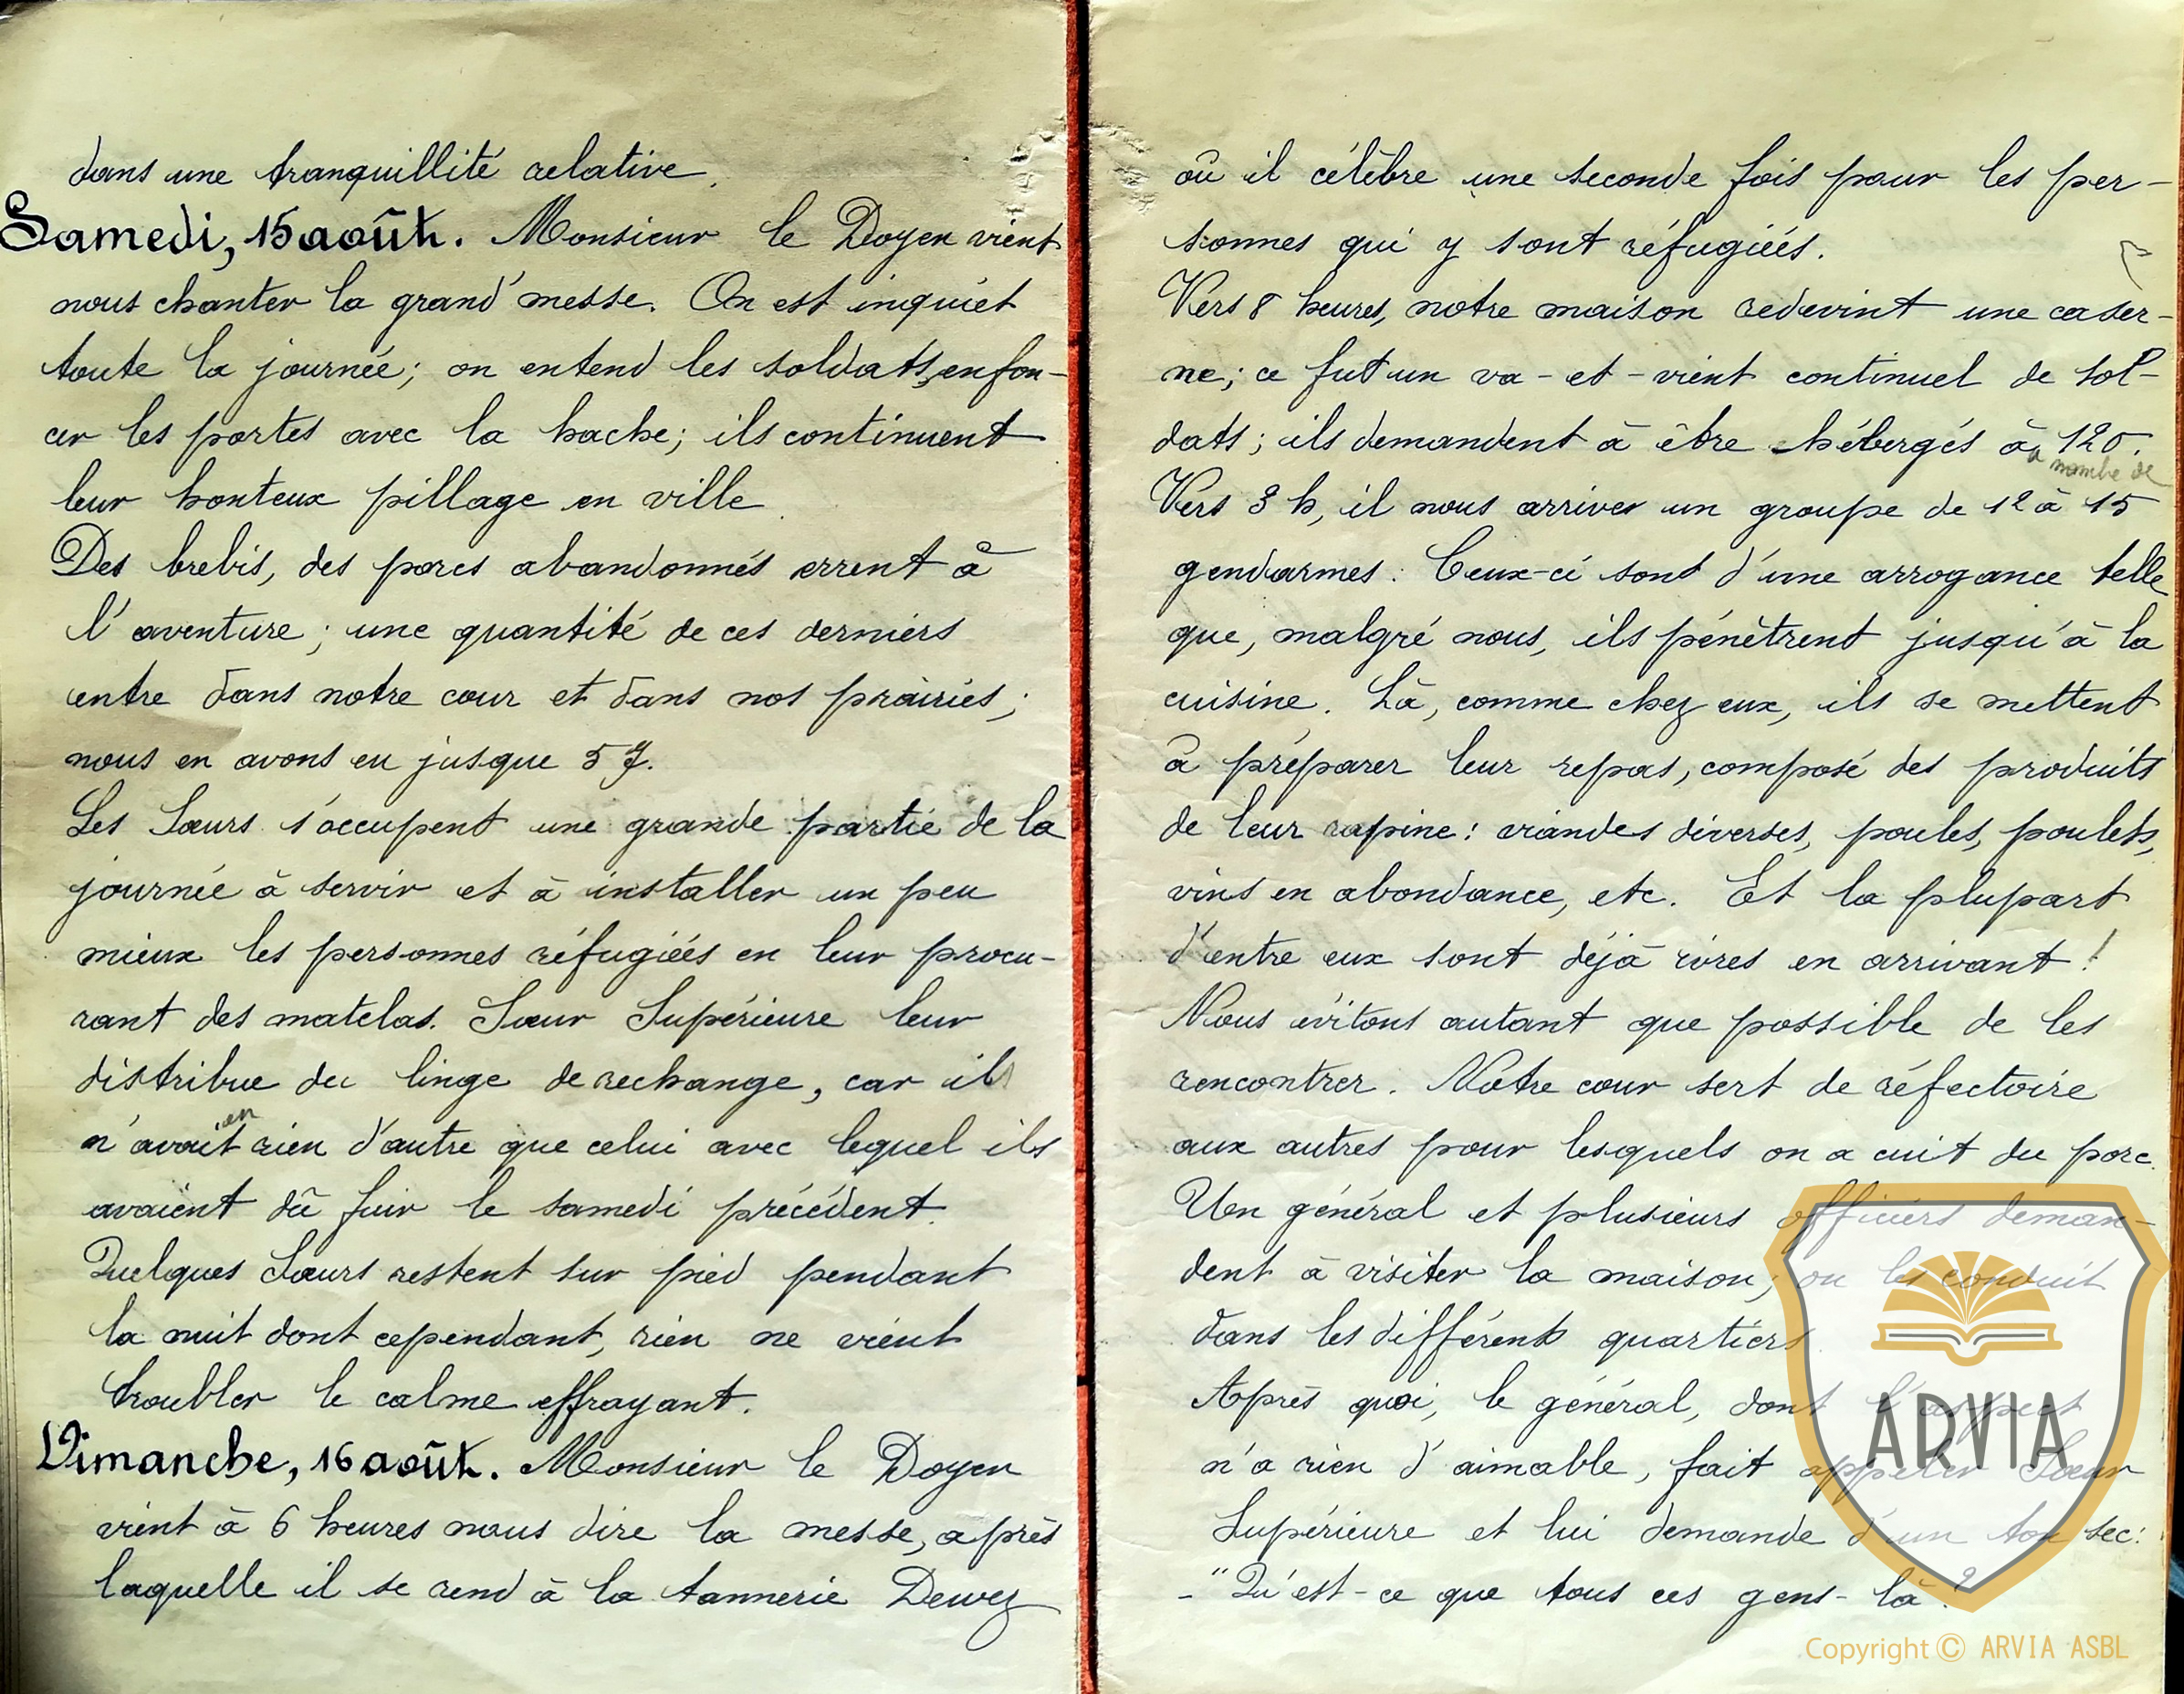 dans une tranquillité relative.
Samedi, 15 août. Monsieur le Doyen vient
nous chanter la grand'messe. On est inquiet
toute la journée; on entend les soldats enfon-
cer les portes avec la hache; ils continuent
leur honteux pillage en ville.
Des brebis, des porcs abandonnés errent à
l'aventure; une quantité de ces derniers
entre dans notre cour et dans nos prairies;
nous en avons eu jusque 57.
Les Sœurs s'occupent une grande partie de la
journée à servir et à installer un peu
mieux les personnes réfugiées en leur procu-
rant des matelas. Sœur Supérieure leur
distribue du linge de rechange, car ils
en
n'avait rien d'autre que celui avec lequel ils
avaient dû fuir le samedi précédent.
Quelques Sœurs restent sur pied pendant
la nuit dont cependant, rien ne vient
troubler le calme effrayant.
Dimanche, 16 août. Monsieur le Doyen
vient à 6 heures nous dire la messe, après
laquelle il se rend à la tannerie Dewez
où il célèbre une seconde fois pour les per-
sonnes qui y sont réfugiées.
Vers 8 heures, notre maison redevint une caser-
ne; ce fut un va-et-vient continuel de sol-
dats; ils demandent à être hébergés à 120.
nombe de
Vers 3 h, il nous arriver un groupe de 12 à 15
gendarmes. Ceux-ci sont d'une arrogance telle
que, malgré nous, ils pénètrent jusqu'à la
cuisine. Là, comme chez eux, ils se mettent
à préparer leur repas, composé des produits
de leur rapine: viandes diverses, poules, poulets,
vins en abondance, etc. Et la plupart
d'entre eux sont déjà ivres en arrivant!
Nous évitons autant que possible de les
rencontrer. Notre cour sert de réfectoire
aux autres pour lesquels on a cuit du porc.
Un général et plusieurs officiers deman-
dent à visiter la maison; on les conduit
dans les différents quartiers.
Après quoi, le général, dont l'aspect
n'a rien d'aimable, fait appeler Sœur
Supérieure et lui demande d'un ton sec:
- "Qu'est-ce que tous ces gens-là?
ARVIA
Copyright © ARVIA ASBL